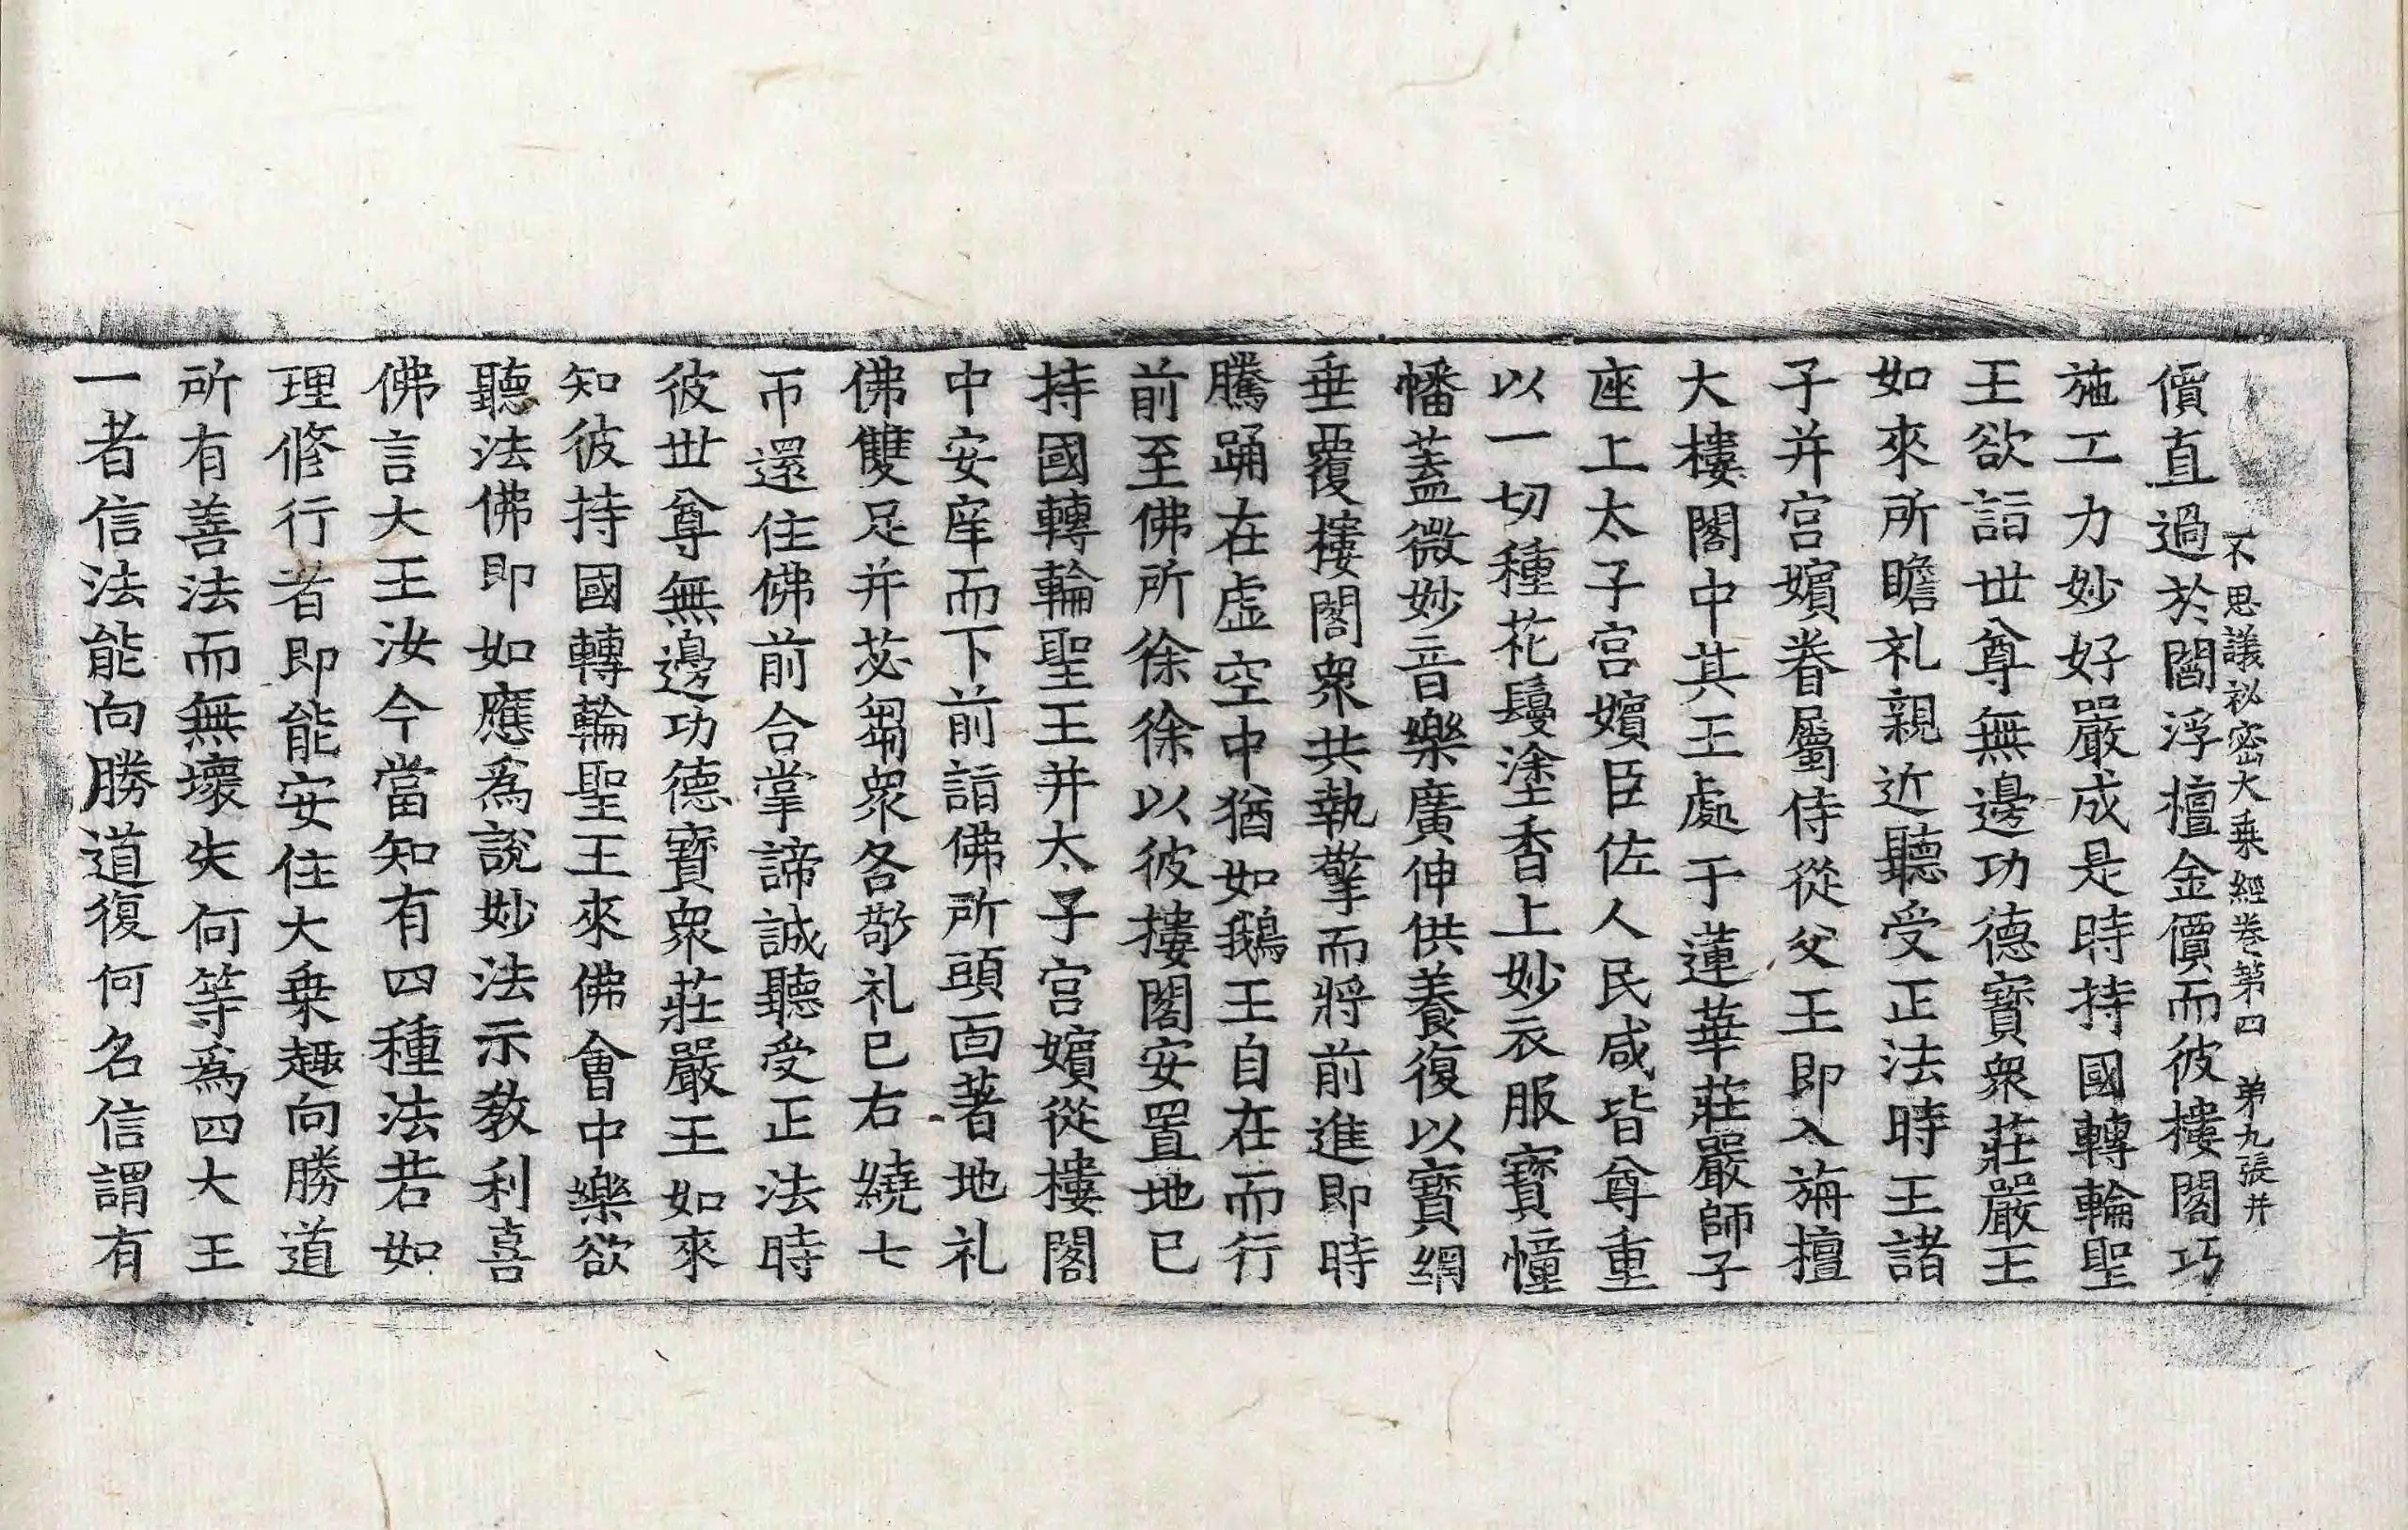 不思議祕密大乗經卷第四 弟九張 井
價直過於閻浮檀金價而彼樓閣巧
施工力妙好嚴成是時持國轉輪聖
王欲詣世尊無邊功德寶衆莊嚴王
如來所瞻礼親近聽受正法時王諸
子并宮嬪眷屬侍從父王即入旃檀
大樓閣中其王處于蓮華莊嚴師子
座上太子宮嬪臣佐人民咸皆尊重
以一切種花鬘塗香上妙衣服寶幢
幡蓋微妙音樂廣伸供養復以寶網
垂覆樓閣衆共執擎而將前進即時
騰踊在虛空中猶如鵝王自在而行
前至佛所徐徐以彼樓閣安置地已
持國轉輪聖王并太子宮嬪從樓閣
中安庠而下前詣佛所頭面著地礼
佛雙足并苾芻衆各各敬礼已右繞七
帀還住佛前合掌諦誠聽受正法時
彼世尊無邊功德寶衆莊嚴王如來
知彼持國轉輪聖王來佛會中樂欲
聽法佛即如應爲說妙法示教利喜
佛言大王汝今當知有四種法若如
理修行者即能安住大乗趣向勝道
所有善法而無壞失何等爲四大王
一者信法能向勝道復何名信謂有